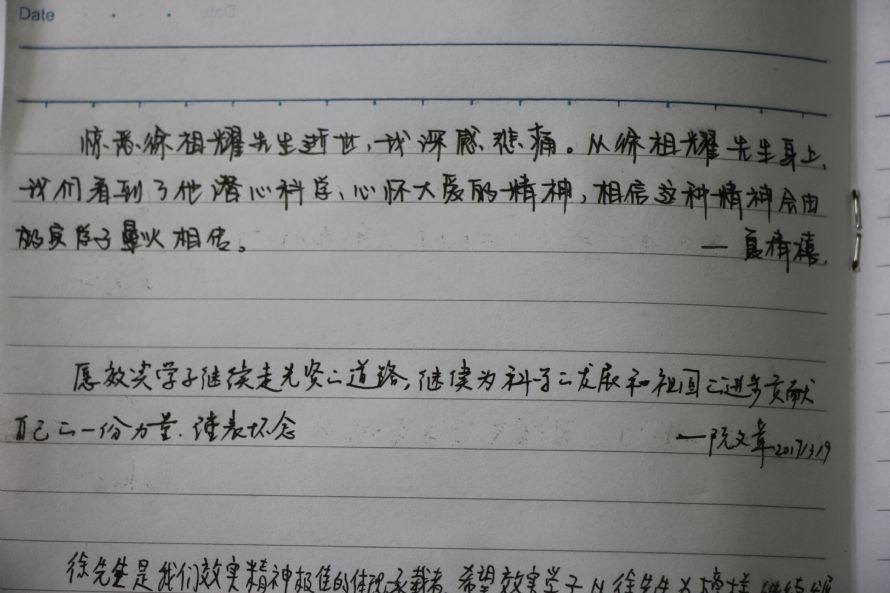 Date
惊悉徐祖耀先生逝世，我深感悲痛。从徐祖耀先生身上，
我们看到了他潜心科学、心怀大爱的精神，相信这种精神会由
效实学子薪火相传。 — 夏倩禧
愿效实学子继续走先贤之道路，继续为科学之发展和祖国之进步贡献
自己之一份力量．谨表怀念 — 阮文章 2017/3/19
徐先生是我们效实精神极佳的体现承载者 希望效实学子从徐先生